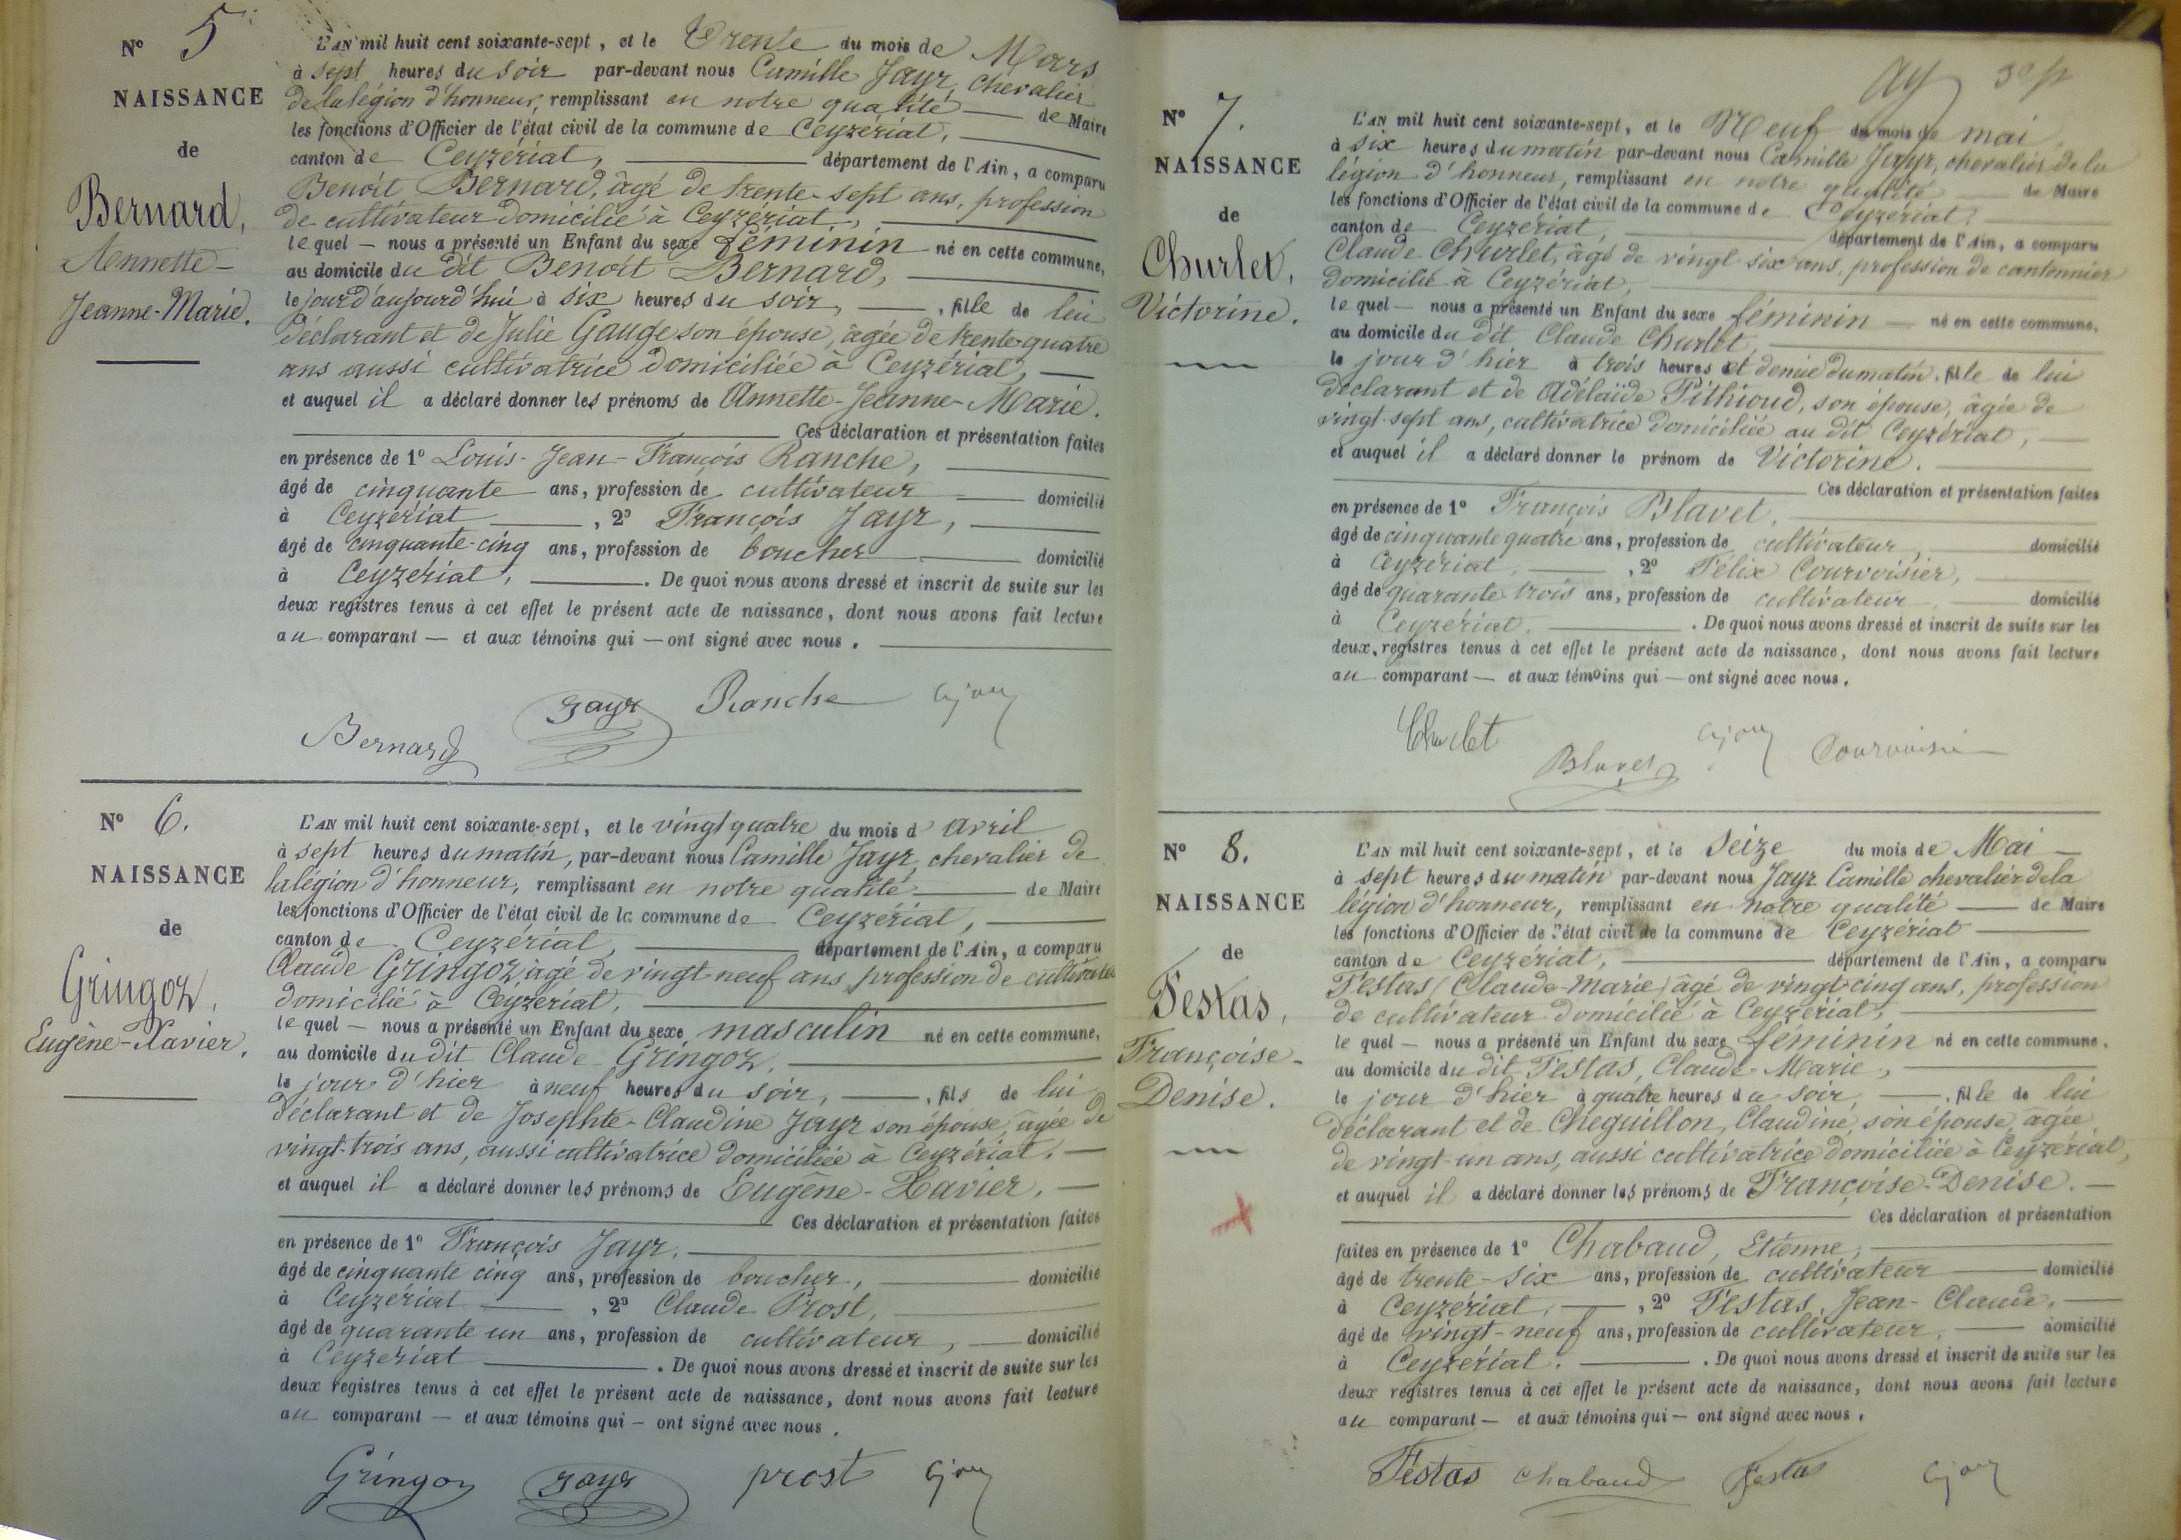 N° 5
NAISSANCE
de
Bernard,
Annette-
Jeanne-Marie.
L'AN mil huit cent soixante-sept, et le Trente du mois de Mars
à sept heures du soir par-devant nous Camille Jayr, chevalier
de la légion d'honneur, remplissant en notre qualité de Maire
les fonctions d'Officier de l'état civil de la commune de Ceyzériat,
canton de Ceyzériat, département de l'Ain, a comparu
Benoit Bernard, âgé de trente-sept ans, profession
de cultivateur domicilié à Ceyzériat,
lequel nous a présenté un Enfant du sexe féminin né en cette commune,
au domicile du dit Benoit Bernard,
le jour d'aujourd'hui à six heures du soir, fille de lui
déclarant et de Julie Gauge son épouse, âgée de trente-quatre
ans aussi cultivatrice domiciliée à Ceyzériat,
et auquel il a déclaré donner les prénoms de Annette-Jeanne-Marie.
Ces déclaration et présentation faites
en présence de 1° Louis-Jean-François Ranche,
âgé de cinquante ans, profession de cultivateur domicilié
à Ceyzériat, 2° François Jayr,
âgé de cinquante-cinq ans, profession de boucher domicilié
à Ceyzériat, . De quoi nous avons dressé et inscrit de suite sur les
deux registres tenus à cet effet le présent acte de naissance, dont nous avons fait lecture
au comparant — et aux témoins qui — ont signé avec nous.
Bernard Jayr Ranche
N° 6.
NAISSANCE
de
Gringoz,
Eugène-Xavier.
L'AN mil huit cent soixante-sept, et le vingt quatre du mois d'avril
à sept heures du matin, par-devant nous Camille Jayr, chevalier de
la légion d'honneur, remplissant en notre qualité de Maire
les fonctions d'Officier de l'état civil de la commune de Ceyzériat,
canton de Ceyzériat, département de l'Ain, a comparu
Claude Gringoz, âgé de vingt-neuf ans, profession de cultivateur
domicilié à Ceyzeriat,
lequel — nous a présenté un Enfant du sexe masculin né en cette commune,
au domicile du dit Claude Gringoz,
le jour d'hier à neuf heures du soir, fils de lui
déclarant et de Josephte-Claudine Jayr son épouse, âgée de
vingt-trois ans, aussi cultivatrice domiciliée à Ceyzériat.
et auquel il a déclaré donner les prénoms de Eugène-Xavier.
Ces déclaration et présentation faites
en présence de 1° François Jayr,
âgé de cinquante cinq ans, profession de boucher, domicilié
à Ceyzériat, 2° Claude Prost,
âgé de quarante un ans, profession de cultivateur, domicilié
à Ceyzériat . De quoi nous avons dressé et inscrit de suite sur les
deux registres tenus à cet effet le présent acte de naissance, dont nous avons fait lecture
au comparant — et aux témoins qui — ont signé avec nous.
Gringoz Jayr prost
N° 7.
NAISSANCE
de
Churlet,
Victorine.
L'AN mil huit cent soixante-sept, et le Neuf du mois de mai
à six heures du matin par-devant nous Camille Jayr, chevalier de la
légion d'honneur, remplissant en notre qualité de Maire
les fonctions d'Officier de l'état civil de la commune de Ceyzériat,
canton de Ceyzériat, département de l'Ain, a comparu
Claude Churlet, âgé de vingt six ans, profession de cantonnier
domicilié à Ceyzériat,
lequel — nous a présenté un Enfant du sexe féminin — né en cette commune,
au domicile du dit Claude Churlet,
le jour d'hier à trois heures et demie du matin, fille de lui
déclarant et de Adélaïde Pithioud, son épouse, âgée de
vingt-sept ans, cultivatrice domiciliée au dit Ceyzériat,
et auquel il a déclaré donner le prénom de Victorine.
Ces déclaration et présentation faites
en présence de 1° François Blavet,
âgé de cinquante quatre ans, profession de cultivateur, domicilié
à Ceyzériat, 2° Félix Courvoisier,
âgé de quarante trois ans, profession de cultivateur, domicilié
à Ceyzériat. . De quoi nous avons dressé et inscrit de suite sur les
deux registres tenus à cet effet le présent acte de naissance, dont nous avons fait lecture
au comparant — et aux témoins qui — ont signé avec nous.
Churlet Blavet Courvoisie
N° 8.
NAISSANCE
de
Festas,
Françoise-
Denise.
L'AN mil huit cent soixante-sept, et le Seize du mois de Mai
à sept heures du matin par-devant nous Jayr Camille chevalier de la
légion d'honneur, remplissant en notre qualité de Maire
les fonctions d'Officier de l'état civil de la commune de Ceyzériat
canton de Ceyzériat, département de l'Ain, a comparu
Festas (Claude-Marie) âgé de vingt-cinq ans, profession
de cultivateur domicilié à Ceyzériat,
lequel — nous a présenté un Enfant du sexe féminin né en cette commune,
au domicile du dit Festas, Claude-Marie,
le jour d'hier à quatre heures du soir, fille de lui
déclarant et de Cheguillon, Claudine, son épouse, âgée
de vingt-un ans, aussi cultivatrice domiciliée à Ceyzériat,
et auquel il a déclaré donner les prénoms de Françoise-Denise.
Ces déclaration et présentation
faites en présence de 1° Chabaud, Etienne,
âgé de trente-six ans, profession de cultivateur domicilié
à Ceyzériat, 2° Festas, Jean-Claude,
âgé de vingt-neuf ans, profession de cultivateur, domicilié
à Ceyzériat. . De quoi nous avons dressé et inscrit de suite sur les
deux registres tenus à cet effet le présent acte de naissance, dont nous avons fait lecture
au comparant — et aux témoins qui — ont signé avec nous.
Festas chabaud festas